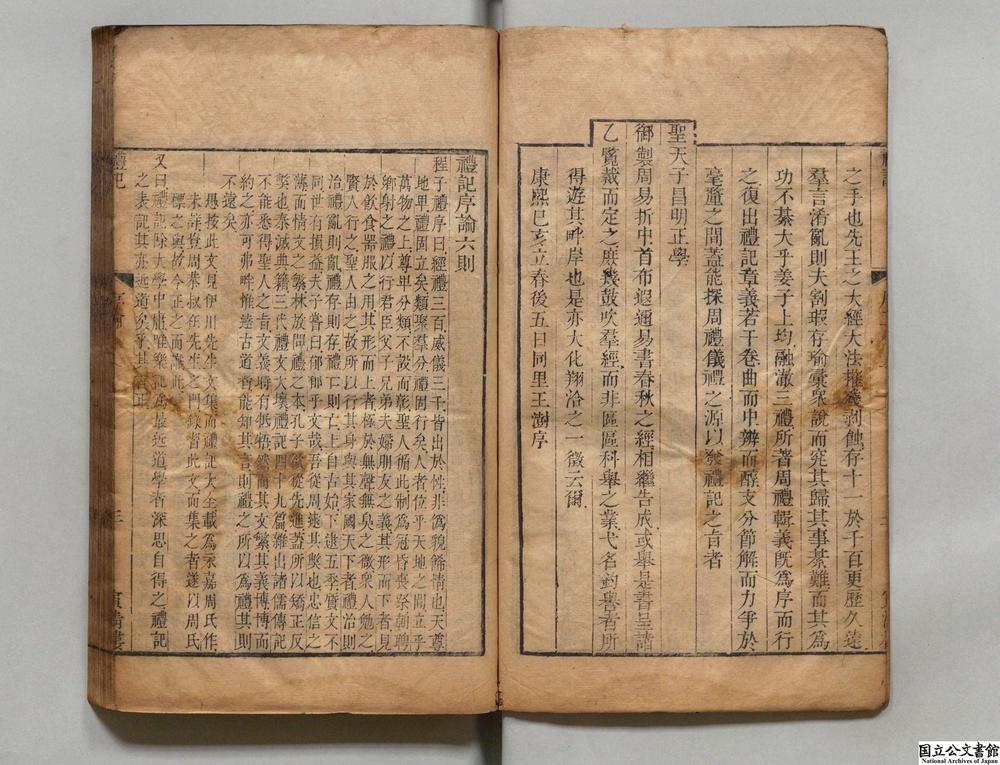 之手也先王之大經大法摧殘剥蝕存十一於千百更歷久遠
羣言淆亂則夫剳瑕存瑜彙衆説而究其歸其事綦難而其為
功不綦大乎姜子上均融澈三禮所著周禮輯義旣為序而行
之復出禮記章義若干卷曲而中辨而醇支分節解而力爭於
毫釐之間蓋能探周禮儀禮之源以發禮記之旨者
聖天子昌明正學
御製周易折中首布遐邇易書春秋之經相繼告成或舉是書呈請
乙覽裁而定之庶幾鼓吹羣經而非區區科舉之業弋名釣譽者所
得遊其畔岸也是亦大化翔洽之一徵云爾
康熙己亥立春後五日同里王澍序
禮記序論六則
程子禮序曰經禮三百威儀三千皆出於性非僞貌飾情也天尊
地卑禮固立矣類聚羣分禮固行矣人者位乎天地之間立乎
萬物之上尊卑分類不設而彰聖人循此制為冠昏喪祭朝聘
鄉射之禮以行君臣父子兄弟夫婦朋友之義其形而下者見
於飲食器服之用其形而上者極於無聲無臭之微衆人勉之
賢人行之聖人由之故所以行其身與其家國天下者禮治則
治禮亂則亂禮存則存禮亡則亡上自古始下逮五季質文不
同世有損益夫子嘗曰郁郁乎文哉吾從周逮其獘也忠信之
薄而情文之繁林放問禮之本孔子欲從先進蓋所以矯正反
獘也秦滅典籍三代禮文大壞禮記四十九篇雜出諸儒傳記
不能悉得聖人之旨文義時有抵牾然而其文繁其義博博而
約之亦可弗畔惟達古道者能知其言則禮之所以為禮其則
不遠矣
愚按此文見伊川先生文集而禮記大全載為永嘉周氏作
未詳豈周恭叔在先生之門錄嘗此文而集之者遂以周氏
標之與故今正之而識此
又曰禮記除大學中庸唯樂記為最近道學者深思自得之禮記
之表記其亦近道矣乎其言正
禮記